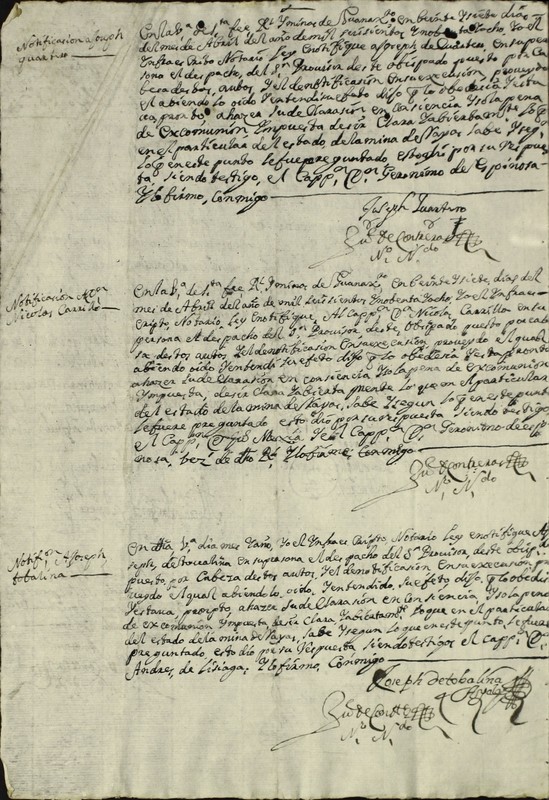 Notificacion a Joseph
quartero
En la V.ª de S.ta fee R.l y minas de Guanax.to en beinte y siete dias
del mes de Abril del año de mil seiscientos y nobenta y ocho, Yo el
Infraescripto Notario Ley y notifique a Joseph de Quartero, en su per
sona el despacho, del S.r Provisor deste obispado puesto por Ca
besa destos autos, y el de notificasion en su execusion, proveydo
el abiendo lo oydo y entendi su efeto dijo q lo obedesia y esta
ba, pronto, a hazer su declarasion en consiencia y so la pena
de excomunion Impuesta desir clara y abiertamente lo q
en el particular del estado de la mina de Rayas sabe y seg.n
lo q en este punto le fuere preguntado, esto dijo por su respues
ta, siendo testigo, el Capp.n D.n Geronimo de Espinosa
Y lo firmo, Conmigo
Joseph Quartero
Ju.o de Contreras
N.o N.do
Notificacion Al Cap.n
Nicolas Carrillo
En la V.ª de S.ta fee R.l y minas de Guanax.to en beinte y siete, dias del
mes de Abril del año de mil seiscientos y nobenta y ocho Yo el Infraes-
cripto, Notario, Ley y notifique, Al Capp.n D.n Nicolas Carrillo en su
persona el despacho del S.r Provisor deste, obispado puesto por cabe
sa, destos autos y el de notificasion en su execusion, proveydo el qual
abiendo oydo y entendi su efeto dijo q lo obedesia y esta pronto
a hazer su declarasion en consiencia y so la pena de excomunion
Impuesta, desir clara y abierta mente lo que en el particular
del estado de la mina de Rayas, sabe y segun lo q en este punto
le fuere preguntado esto dijo por su respuesta siendo testigos
el Capp.n Mexia y el Capp.n D.n Geronimo de espi
nosa, bez.s de dho R.l Y lo firme Conmigo
Ju.o de Contreras
N.o N.do
Notif.on A Joseph
tobalina
En dha V.ª dia mes y año, Yo el Infraescripto Notario Ley y notifique A Jo
seph, de tobalina en su persona el despacho del S.r Provisor, deste obispado
puesto, por Cabeza destos autos, y el de notificasion en su execusion, pro
veydo el qual abiendolo, oydo, y entendido, su efeto dijo, q lo obedesia
y estava, prompto, a hazer su declarasion en Consiencia y so la pena
de excomunion Impuesta, desir clara y abiertam.te lo que en el particular
del estado de la mina de Rayas, sabe y segun lo que en este punto, le fuere
preguntado esto dijo por su respuesta, siendo testigos el Capp.n D.n
Andres, de Lisiaga; Y lo firmo, Conmigo
Joseph de tobalina
Ju.o de Contreras
N.o N.do